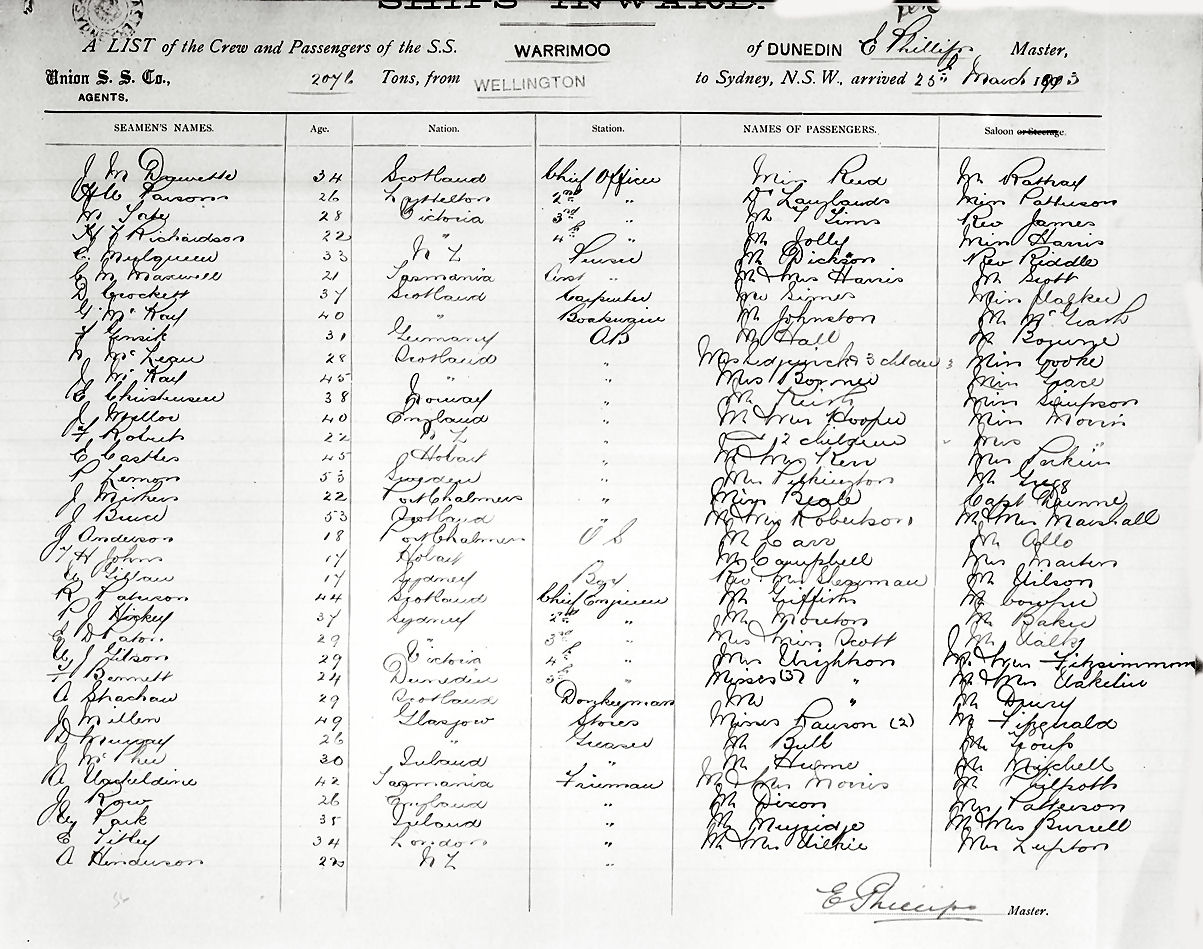 SHIPS INWARD.
A LIST of the Crew and Passengers of the S.S. WARRIMOO of DUNEDIN E Phillips Master,
Union S. S. Co., 2076 Tons, from WELLINGTON to Sydney, N.S.W., arrived 25th March
AGENTS.
SEAMEN'S NAMES. Age. Nation. Station. NAMES OF PASSENGERS. Saloon or Steerage.
34 Scotland Chief Officer Miss Reid Mr Rattray
Parsons 26 Lyttelton 2nd " Dr Langlands Miss Patterson
28 Victoria 3rd " Mr T Sims Rev James
Richardson 22 " 4th " Mr Jolly Miss Harris
C. Mulqueen 33 N Z Purser Mr Dickson Rev Riddle
C M Maxwell 21 Tasmania Asst " Mr & Mrs Harris Mr Scott
D Crockett 37 Scotland Carpenter Simes Miss Walker
G McKay 40 " Boatswain Mr Johnston Mr McGrath
31 Germany AB Mr Hall Mr Bourne
N McLean 28 Scotland " Mrs & 3 children 3 Miss Cooke
J McKay 45 " " Mrs Bonner Miss Grace
E Christensen 38 Norway " Mr Keith Miss Simpson
J Mellor 40 England " Mr & Mrs Hooper Miss Morris
F Roberts 22 N Z " 2 children " Mrs "
E Castles 45 Hobart " Mr & Mrs Kerr Mrs Perkins
P Lemon 53 Sweden " Mrs Pilkington Mr Gregg
J Mathers 22 Port Chalmers " Miss Beale Capt Dunne
J Bruce 53 Scotland " Mr & Mrs Robertson Mr & Mrs Marshall
J Anderson 18 Port Chalmers O S Mr Carr Mr Allo
H Johns 17 Hobart Mr Campbell Mrs Martin
W Gillan 17 Sydney Boy Rev Mr Mr Wilson
R Paterson 44 Scotland Chief Engineer Mr Griffiths Mr Cowper
P J Hickey 37 Sydney 2nd " Mr Mouton Mr Baker
E D Eaton 29 " 3rd " Mrs Miss Scott Mr Walks
W J Gibson 29 Victoria 4th " Mrs Wrighton Mr & Mrs Fitzsimmons
F Bennett 24 Dunedin 5 " Misses (3) " Mr & Mrs Wakelin
A Strachan 29 Scotland Donkeyman Mr " Mr Drury
J Millen 49 Glasgow Stores Misses Rawson (2) Mr Fitzgerald
D Murray 26 " Greaser Mr Bull Mr Group
J McPhee 30 Ireland " Mr Hume Mr Mitchell
A Uppeldine 42 Tasmania Fireman Mr & Mrs Morris Mr
J Row 26 England " Mr Dixon Mrs Patterson
Hy Park 35 Ireland " Mr Muzridge Mr & Mrs Burrell
E Titley 34 London " Mr & Mrs Wilkie Mrs Lupton
A Henderson 22 N Z "
E Phillips Master.